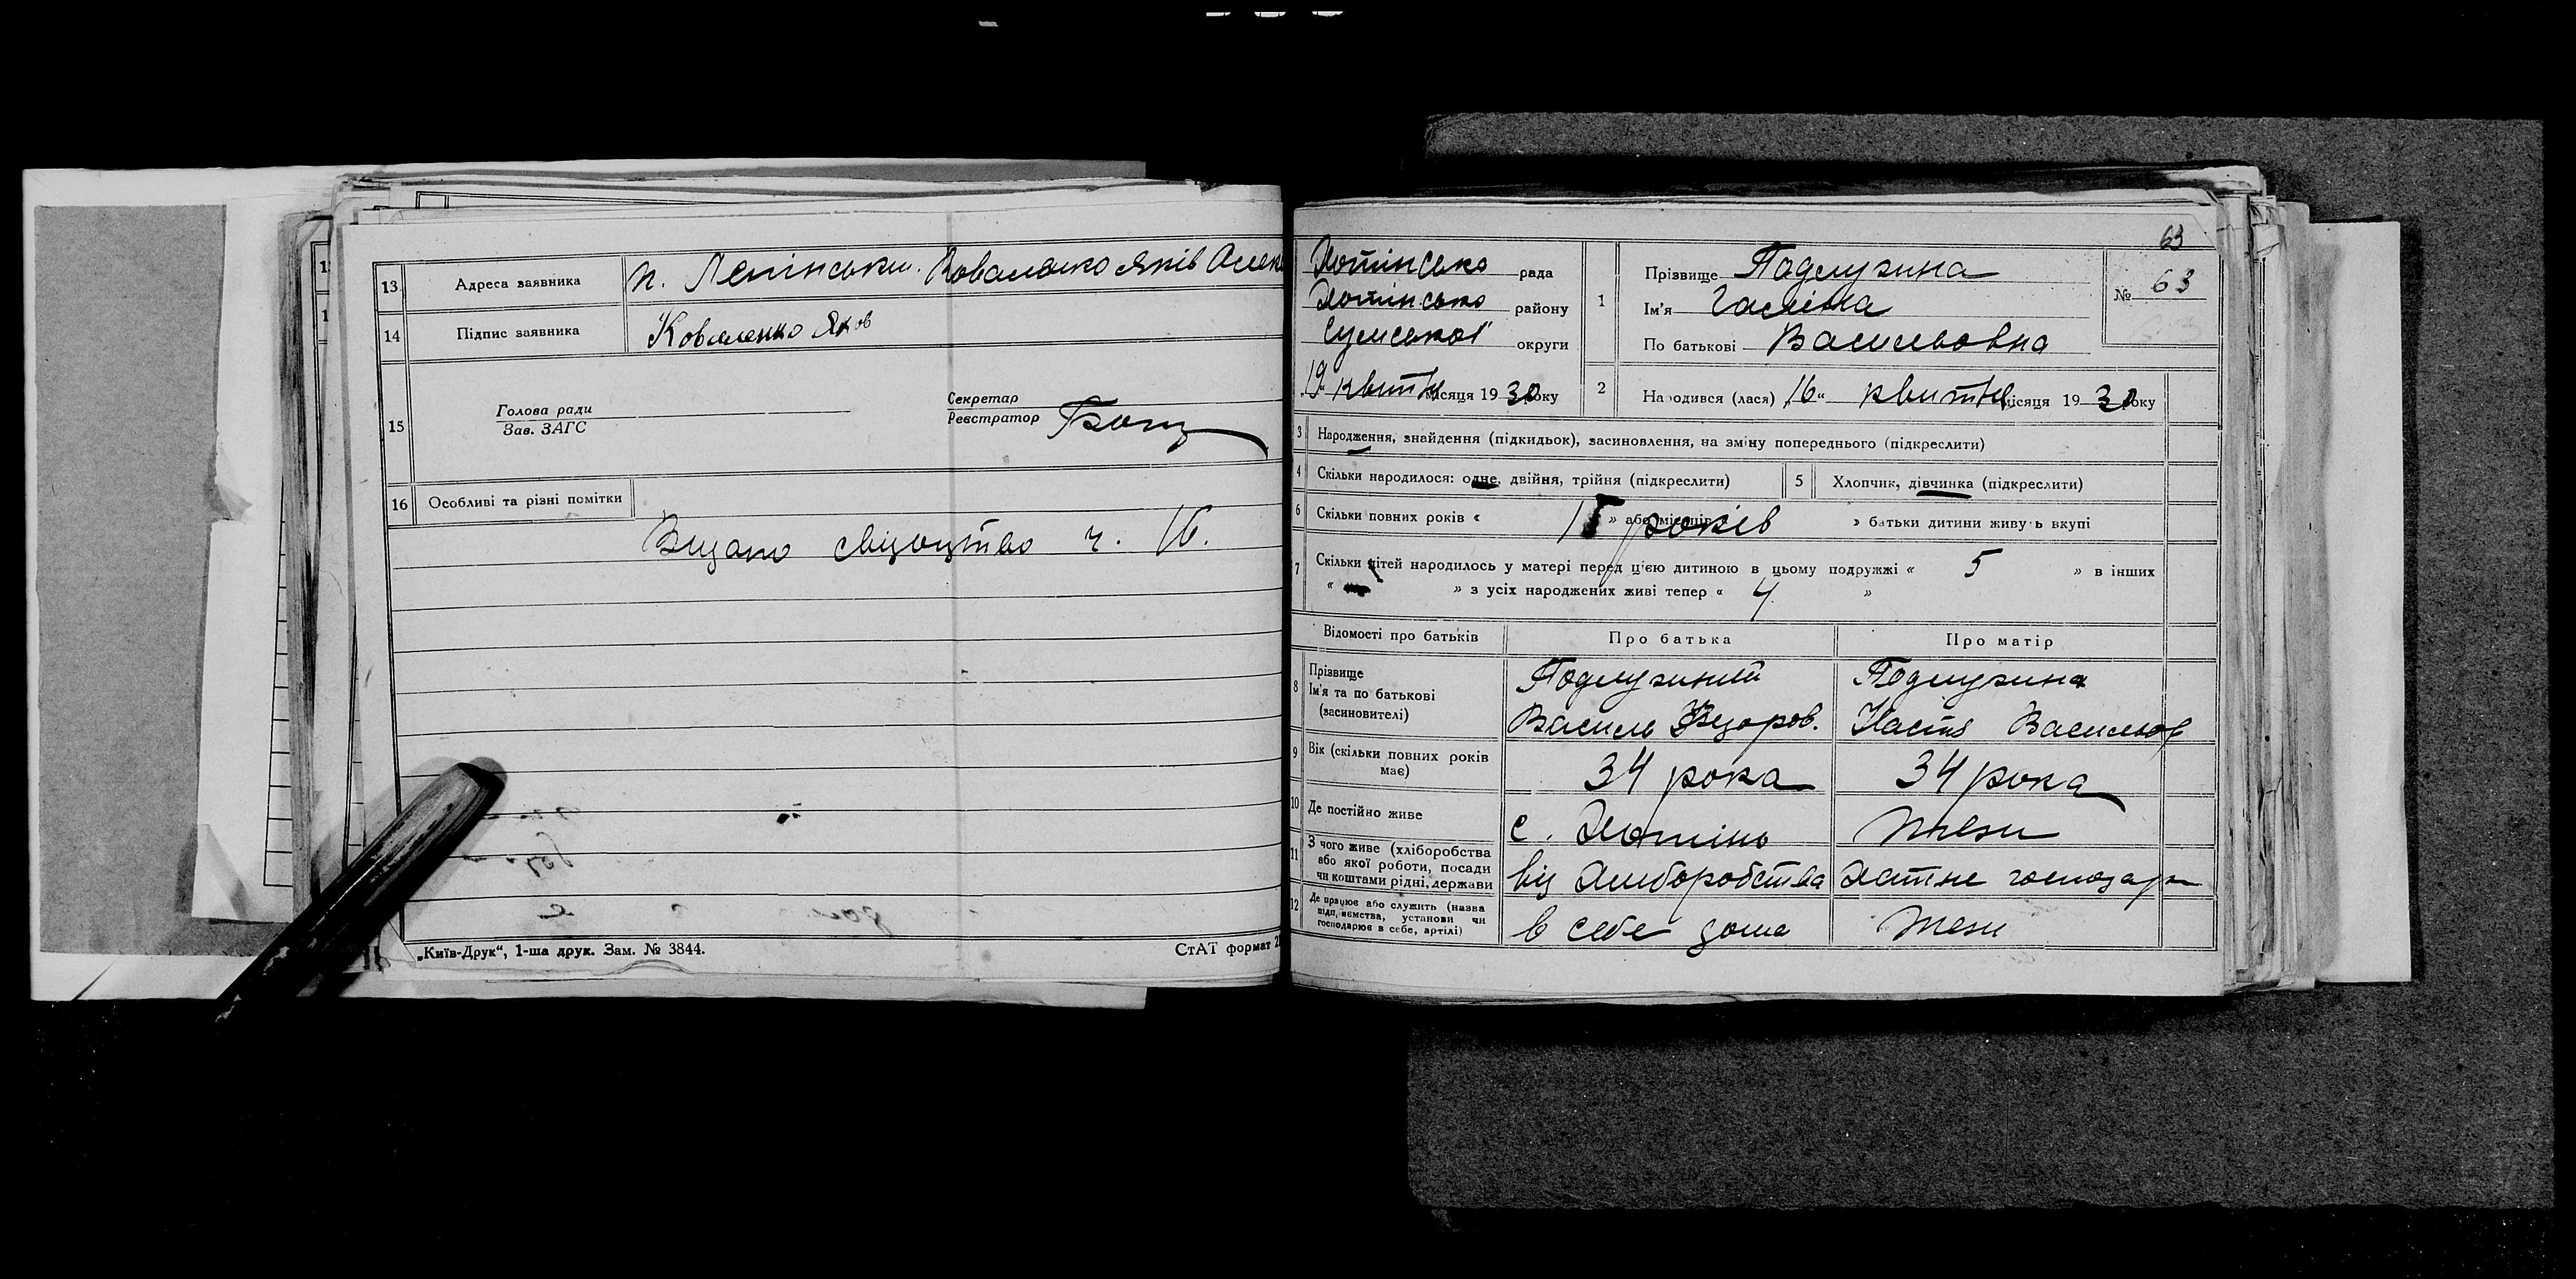 13 Адреса заявника п. Ленінськи. Коваленко Яків Олек
14 Підпис заявника Коваленко Яков
15 Голова ради
Зав. ЗАГС
Секретар
Реєстратор
16 Особливі та різні помітки
Видано свідоцтво ч. 16.
„Київ-Друк“, 1-ша друк. Зам. № 3844. СтАТ формат
63
Хотінсько рада
Хотінсько району
Сумської округи
19 квітня місяця 1930 року
1 Прізвище Подлузина
Ім'я Галіна
По батькові Васильовна
№ 63
2 Народився (лася) „16“ квітня місяця 1930 року
3 Народження, знайдення (підкидьок), засиновлення, на зміну попереднього (підкреслити)
4 Скільки народилося: одне, двійня, трійня (підкреслити) 5 Хлопчик, дівчинка (підкреслити)
6 Скільки повних років « » або місяців років » батьки дитини живуть вкупі
7 Скільки дітей народилось у матері перед цією дитиною в цьому подружжі « 5 » в інших
« » з усіх народжених живі тепер « 4 »
Відомості про батьків Про батька Про матір
8 Прізвище
Ім'я та по батькові
(засиновителі)
Подлузиний
Василь Федоров.
Подлузина
Настя Васильов
9 Вік (скільки повних років
має)
34 рока 34 рока
10 Де постійно живе с. Хотінь
11 З чого живе (хліборобства
або якої роботи, посади
чи коштами рідні, держави
від хліборобства хатне господар
12 Де працює або служить (назва
підприємства, установи чи
господарює в себе, артілі)
в себе дома